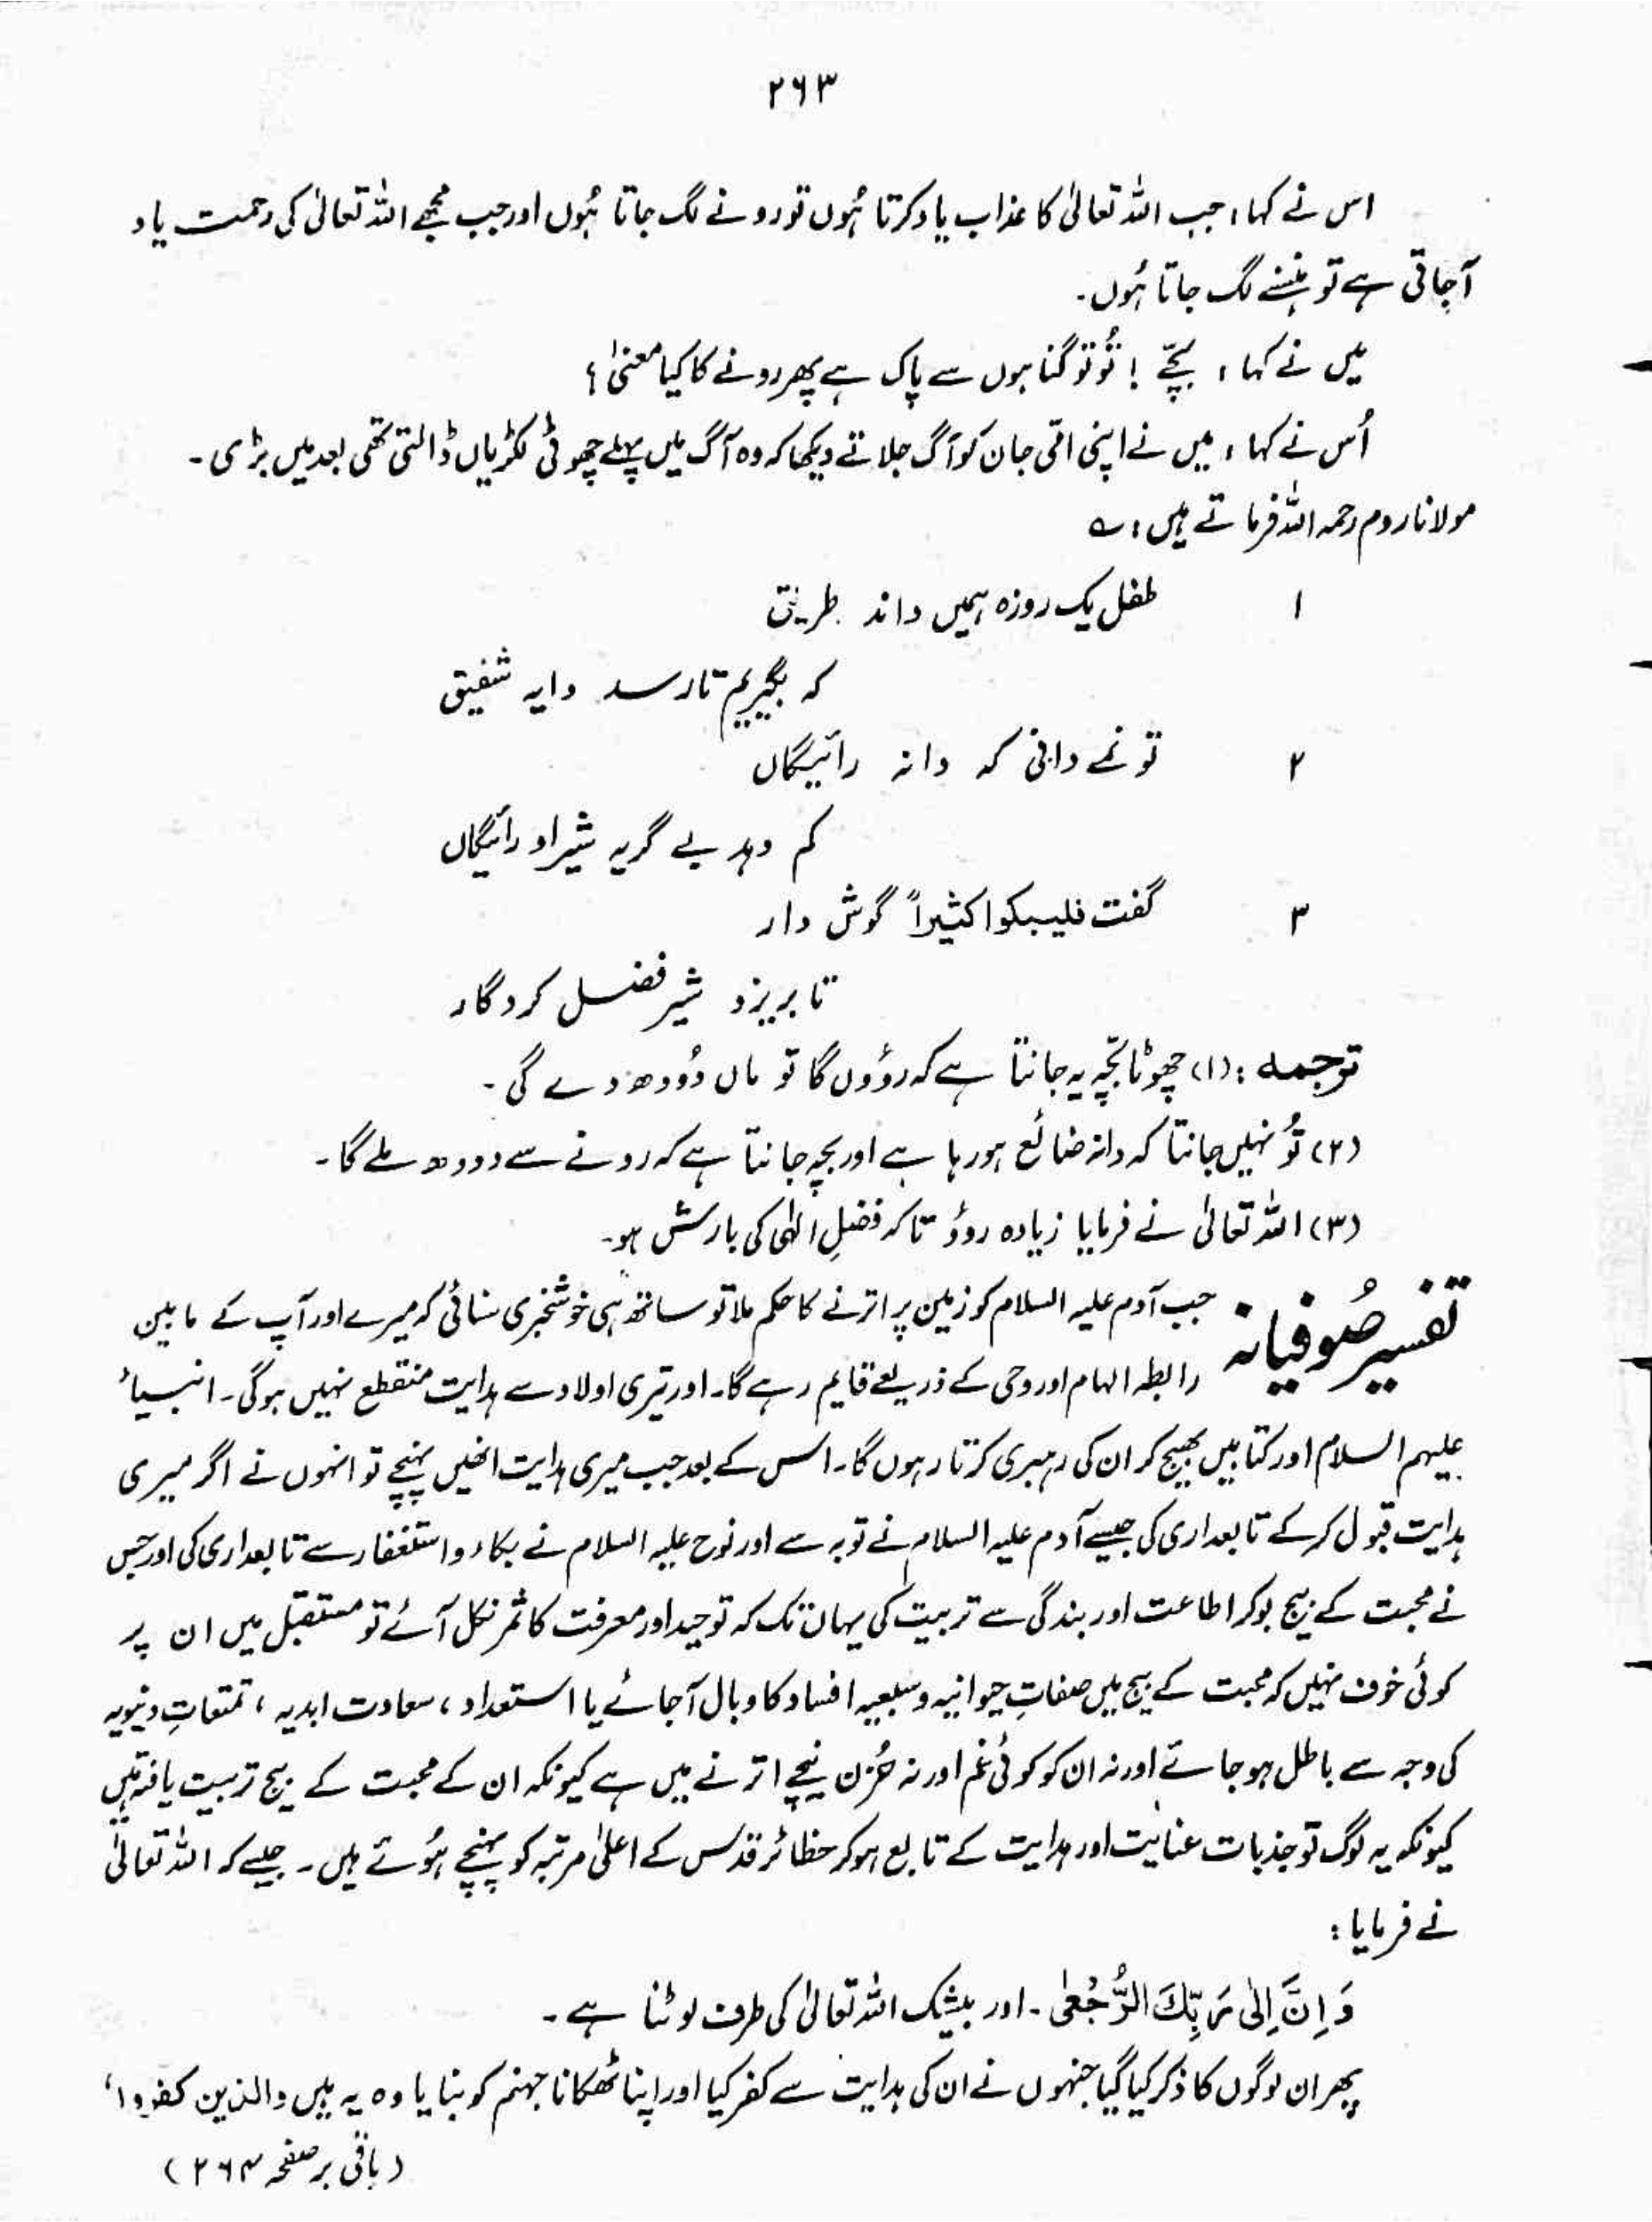 ۲۶۳
اس نے کہا، جب اللہ تعالیٰ کا عذاب یاد کرتا ہُوں تو رونے لگ جاتا ہُوں اور جب مجھے اللہ تعالیٰ کی رحمت یاد
آجاتی ہے تو ہنسنے لگ جاتا ہُوں۔
میں نے کہا، بچّے! تُو تو گناہوں سے پاک ہے پھر رونے کا کیا معنیٰ؟
اُس نے کہا، میں نے اپنی امّی جان کو آگ جلاتے دیکھا کہ وہ آگ میں پہلے چھوٹی لکڑیاں ڈالتی تھی بعد میں بڑی۔
مولانا روم رحمہ اللہ فرماتے ہیں، ؎
۱ طفل یک روزہ ہمیں داند طریق
کہ بگیریم تا رسد دایہ شفیق
۲ تو نمے دانی کہ دانہ رائیگاں
کم دہد بے گریہ شیر او رائیگاں
۳ گفت فلیبکوا کثیراً گوش دار
تا بریزد شیر فضل کردگار
ترجمہ: (۱) چھوٹا بچّہ یہ جانتا ہے کہ روؤں گا تو ماں دُودھ دے گی۔
(۲) تُو نہیں جانتا کہ دانہ ضائع ہو رہا ہے اور بچہ جانتا ہے کہ رونے سے دودھ ملے گا۔
(۳) اللہ تعالیٰ نے فرمایا زیادہ روؤ تاکہ فضلِ الٰہی کی بارش ہو۔
تفسیر صُوفیانہ جب آدم علیہ السلام کو زمین پر اترنے کا حکم ملا تو ساتھ ہی خوشخبری سنائی کہ میرے اور آپ کے مابین
رابطہ الہام اور وحی کے ذریعے قایم رہے گا۔ اور تیری اولاد سے ہدایت منقطع نہیں ہوگی۔ انبیاءُ
علیہم السلام اور کتابیں بھیج کر ان کی رہبری کرتا رہوں گا۔ اس کے بعد جب میری ہدایت انھیں پہنچے تو انہوں نے اگر میری
ہدایت قبول کرکے تابعداری کی جیسے آدم علیہ السلام نے توبہ سے اور نوح علیہ السلام نے بکاء و استغفار سے تابعداری کی اور جس
نے محبت کے بیج بو کر اطاعت اور بندگی سے تربیت کی یہاں تک کہ توحید اور معرفت کا ثمر نکل آئے تو مستقبل میں ان پر
کوئی خوف نہیں کہ محبت کے بیج میں صفاتِ حیوانیہ و سبعیہ افساد کا وبال آجائے یا استعداد، سعادت ابدیہ، تمتعاتِ دنیویہ
کی وجہ سے باطل ہو جائے اور نہ ان کو کوئی غم اور نہ حُزن نیچے اترنے میں ہے کیونکہ ان کے محبت کے بیج تربیت یافتہ ہیں
کیونکہ یہ لوگ تو جذبات عنایت اور ہدایت کے تابع ہوکر حظائر قدس کے اعلیٰ مرتبہ کو پہنچے ہُوئے ہیں۔ جیسے کہ اللہ تعالیٰ
نے فرمایا:
وَ اِنَّ اِلٰی رَبِّكَ الرُّجْعٰی۔ اور بیشک اللہ تعالیٰ کی طرف لوٹنا ہے۔
پھر ان لوگوں کا ذکر کیا گیا جنہوں نے ان کی ہدایت سے کفر کیا اور اپنا ٹھکانا جہنم کو بنایا وہ یہ ہیں والذین کفروا،
(باقی بر صفحہ ۲۶۴)